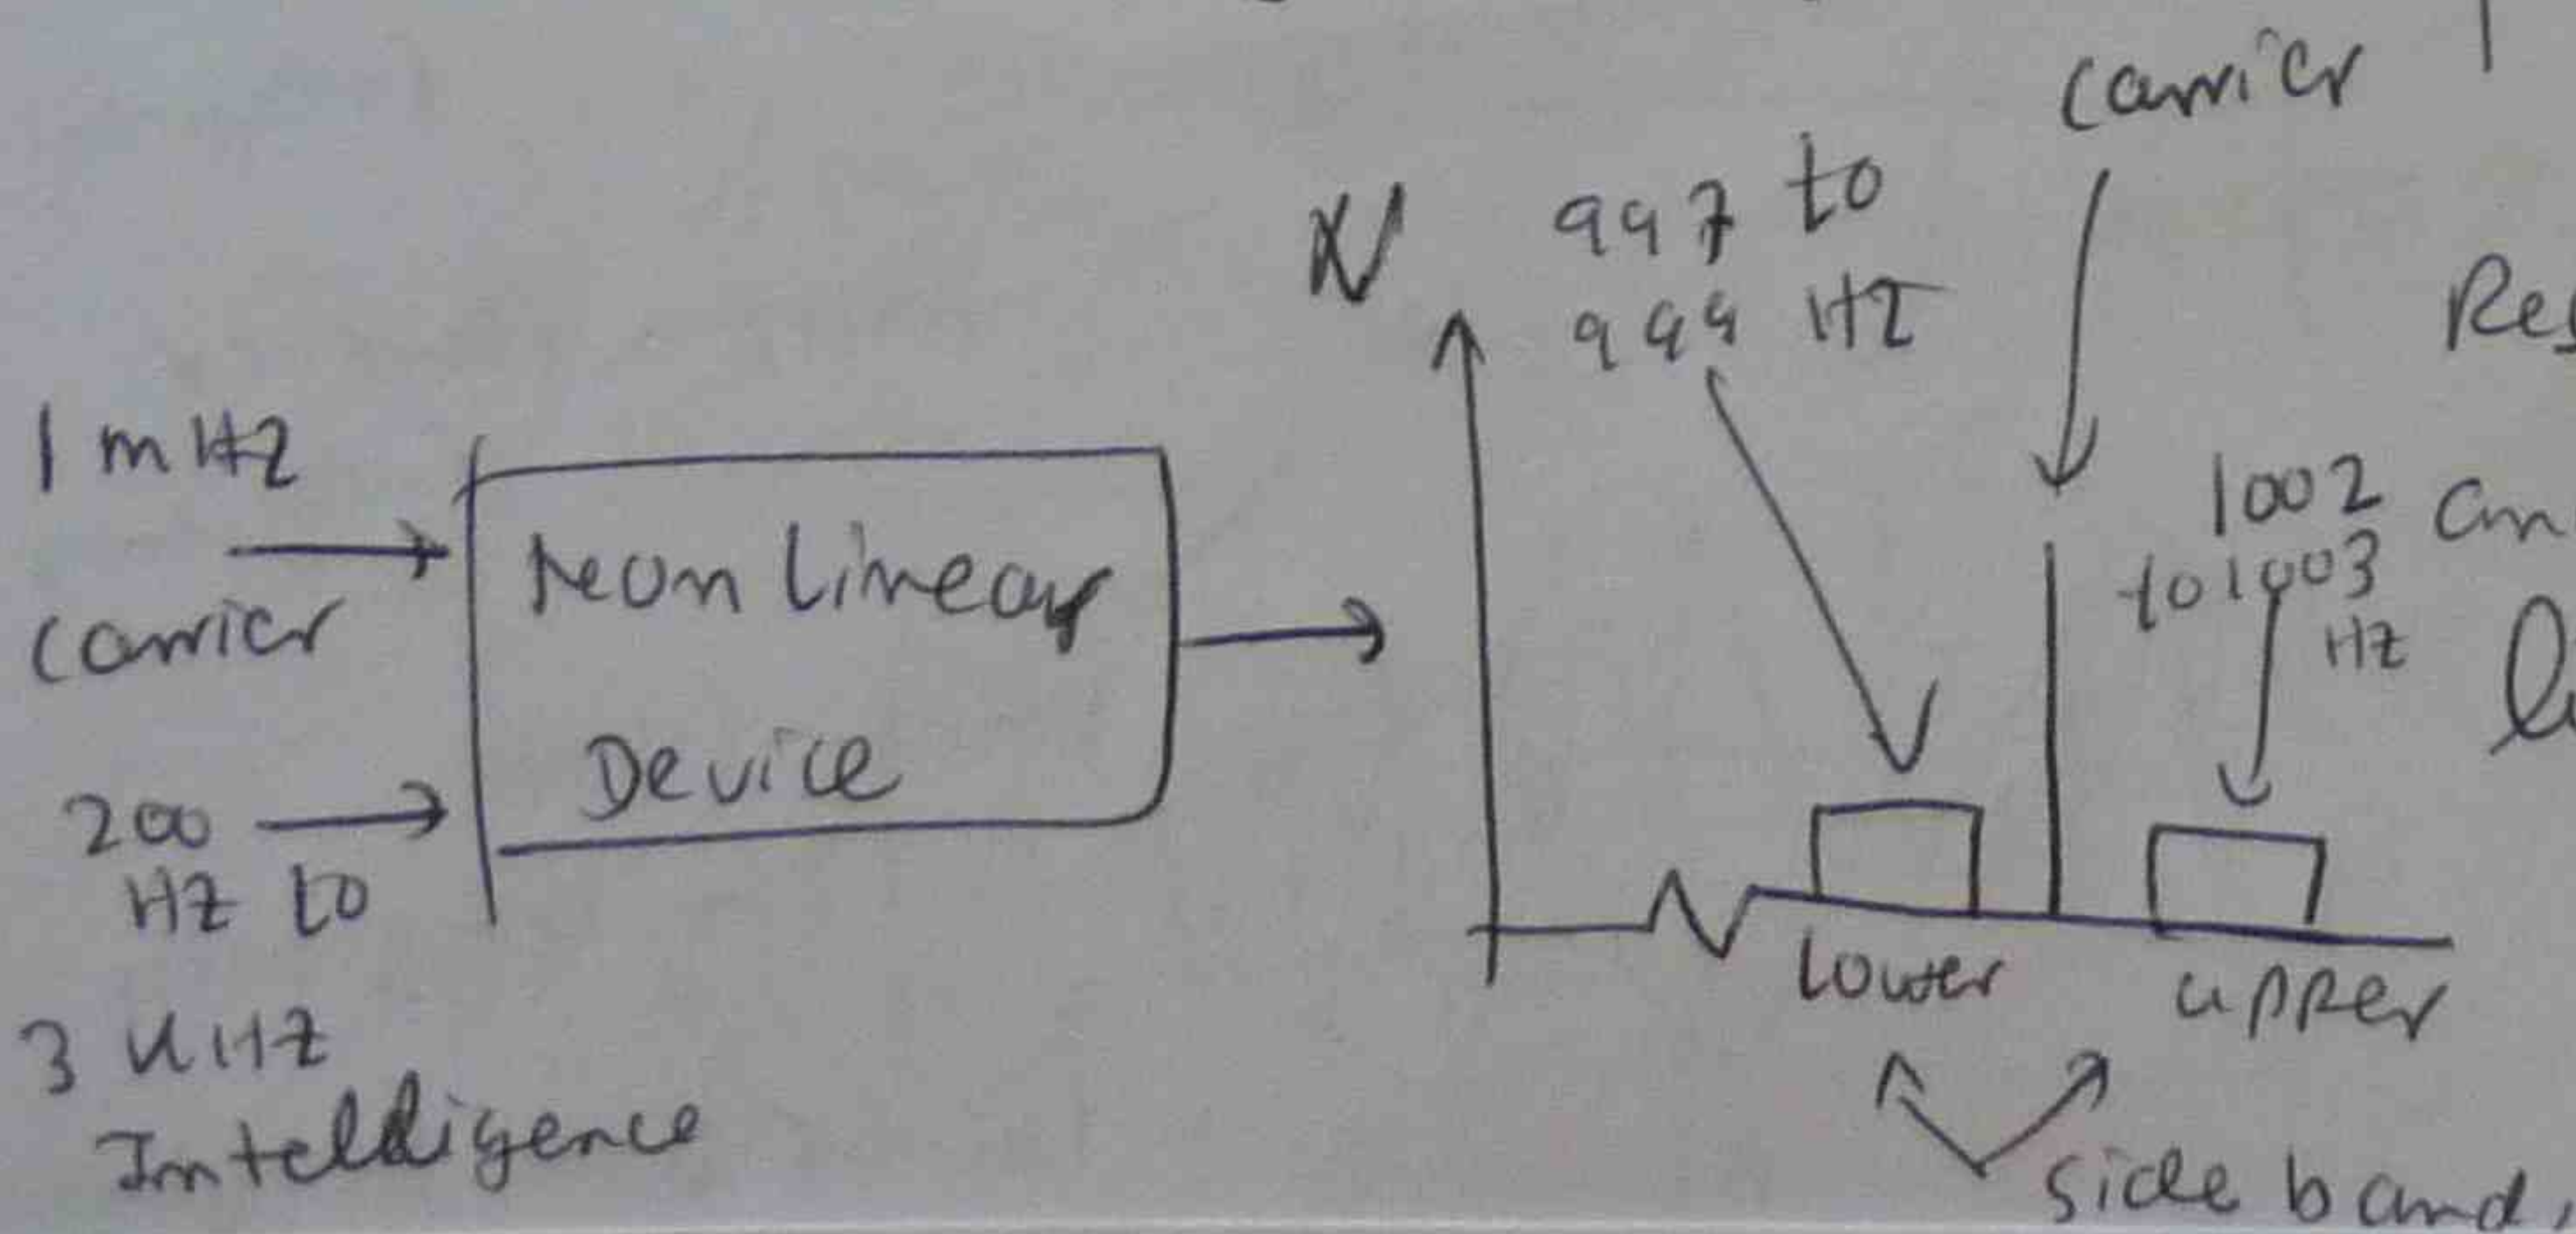 1 mHz
carrier
200
Hz to
3 KHz
Intelligence
Non Linear
Device
V
997 to
999 Hz
carrier
1002
to 1003
Hz
lower
upper
side band
Res
an